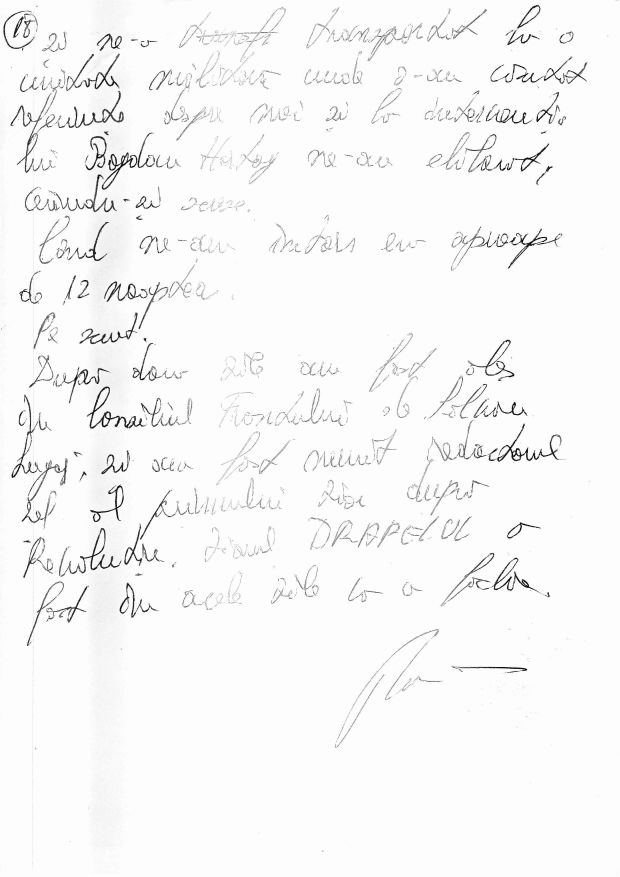 18
și ne-a transpordat la o
unidate militară unde s-au căutat
referințe despre noi și la intervenția
lui Bogdan Herțog ne-au eliberat,
cerându-și scuze.
Când ne-am întors era aproape
de 12 noaptea.
Pe scurt.
După două zile am fost ales
în Consiliul Frontului de Salvare
Lugoj, și am fost numit redactorul
șef al primului ziar după
Revoluție. Ziarul DRAPELUL a
fost în acele zile ca o